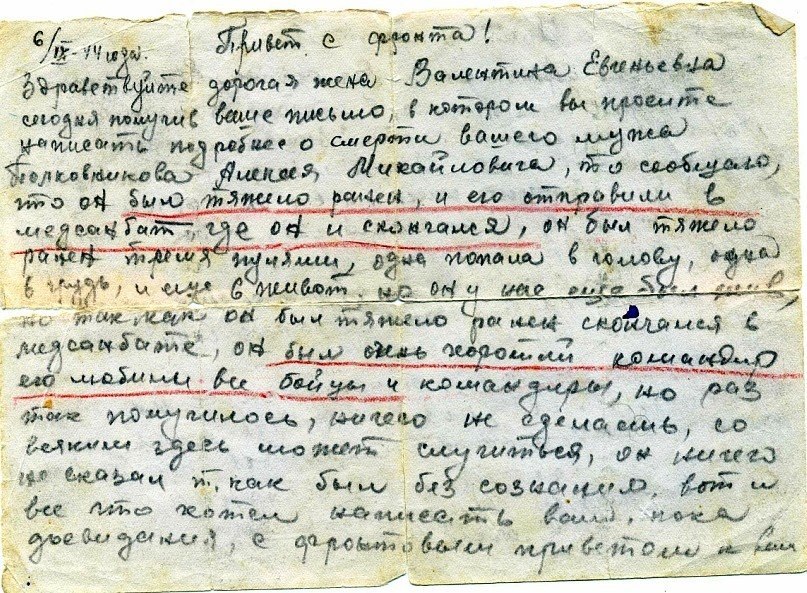 6/IX-44 года. Привет с фронта!
Здравствуйте дорогая жена Валентина Евгеньевна
сегодня получив ваше письмо, в котором вы просите
написать подробнее о смерти вашего мужа
Полковникова Алексея Михайловича, то сообщаю,
что он был тяжело ранен, и его отправили в
медсанбат, где он и скончался, он был тяжело
ранен тремя пулями, одна попала в голову, одна
в грудь, и еще в живот. но он у нас еще был жив,
но так как он был тяжело ранен скончался в
медсанбате, он был очень хороший командир
его любили все бойцы и командиры, но раз
так получилось, ничего не сделаешь, со
всяким здесь может случиться, он ничего
не сказал т. как был без сознания. вот и
все что хотел написать вам. пока
досвидания, с фронтовым приветом к вам